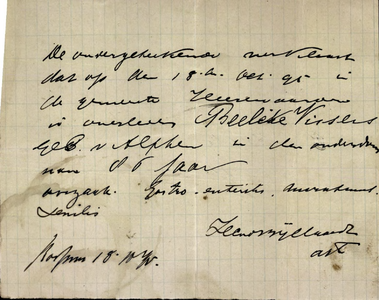 De ondergeteekende verklaart
dat op den 18.n Oct. 95 in
de gemeente Heerewaarden
is overleden Beelike Vissers
Geb. v Alphen in den ouderdom
van 86 jaar
oorzaak. Gastro-enteritis. marasmus.
Senilis
18.10.95.
arts